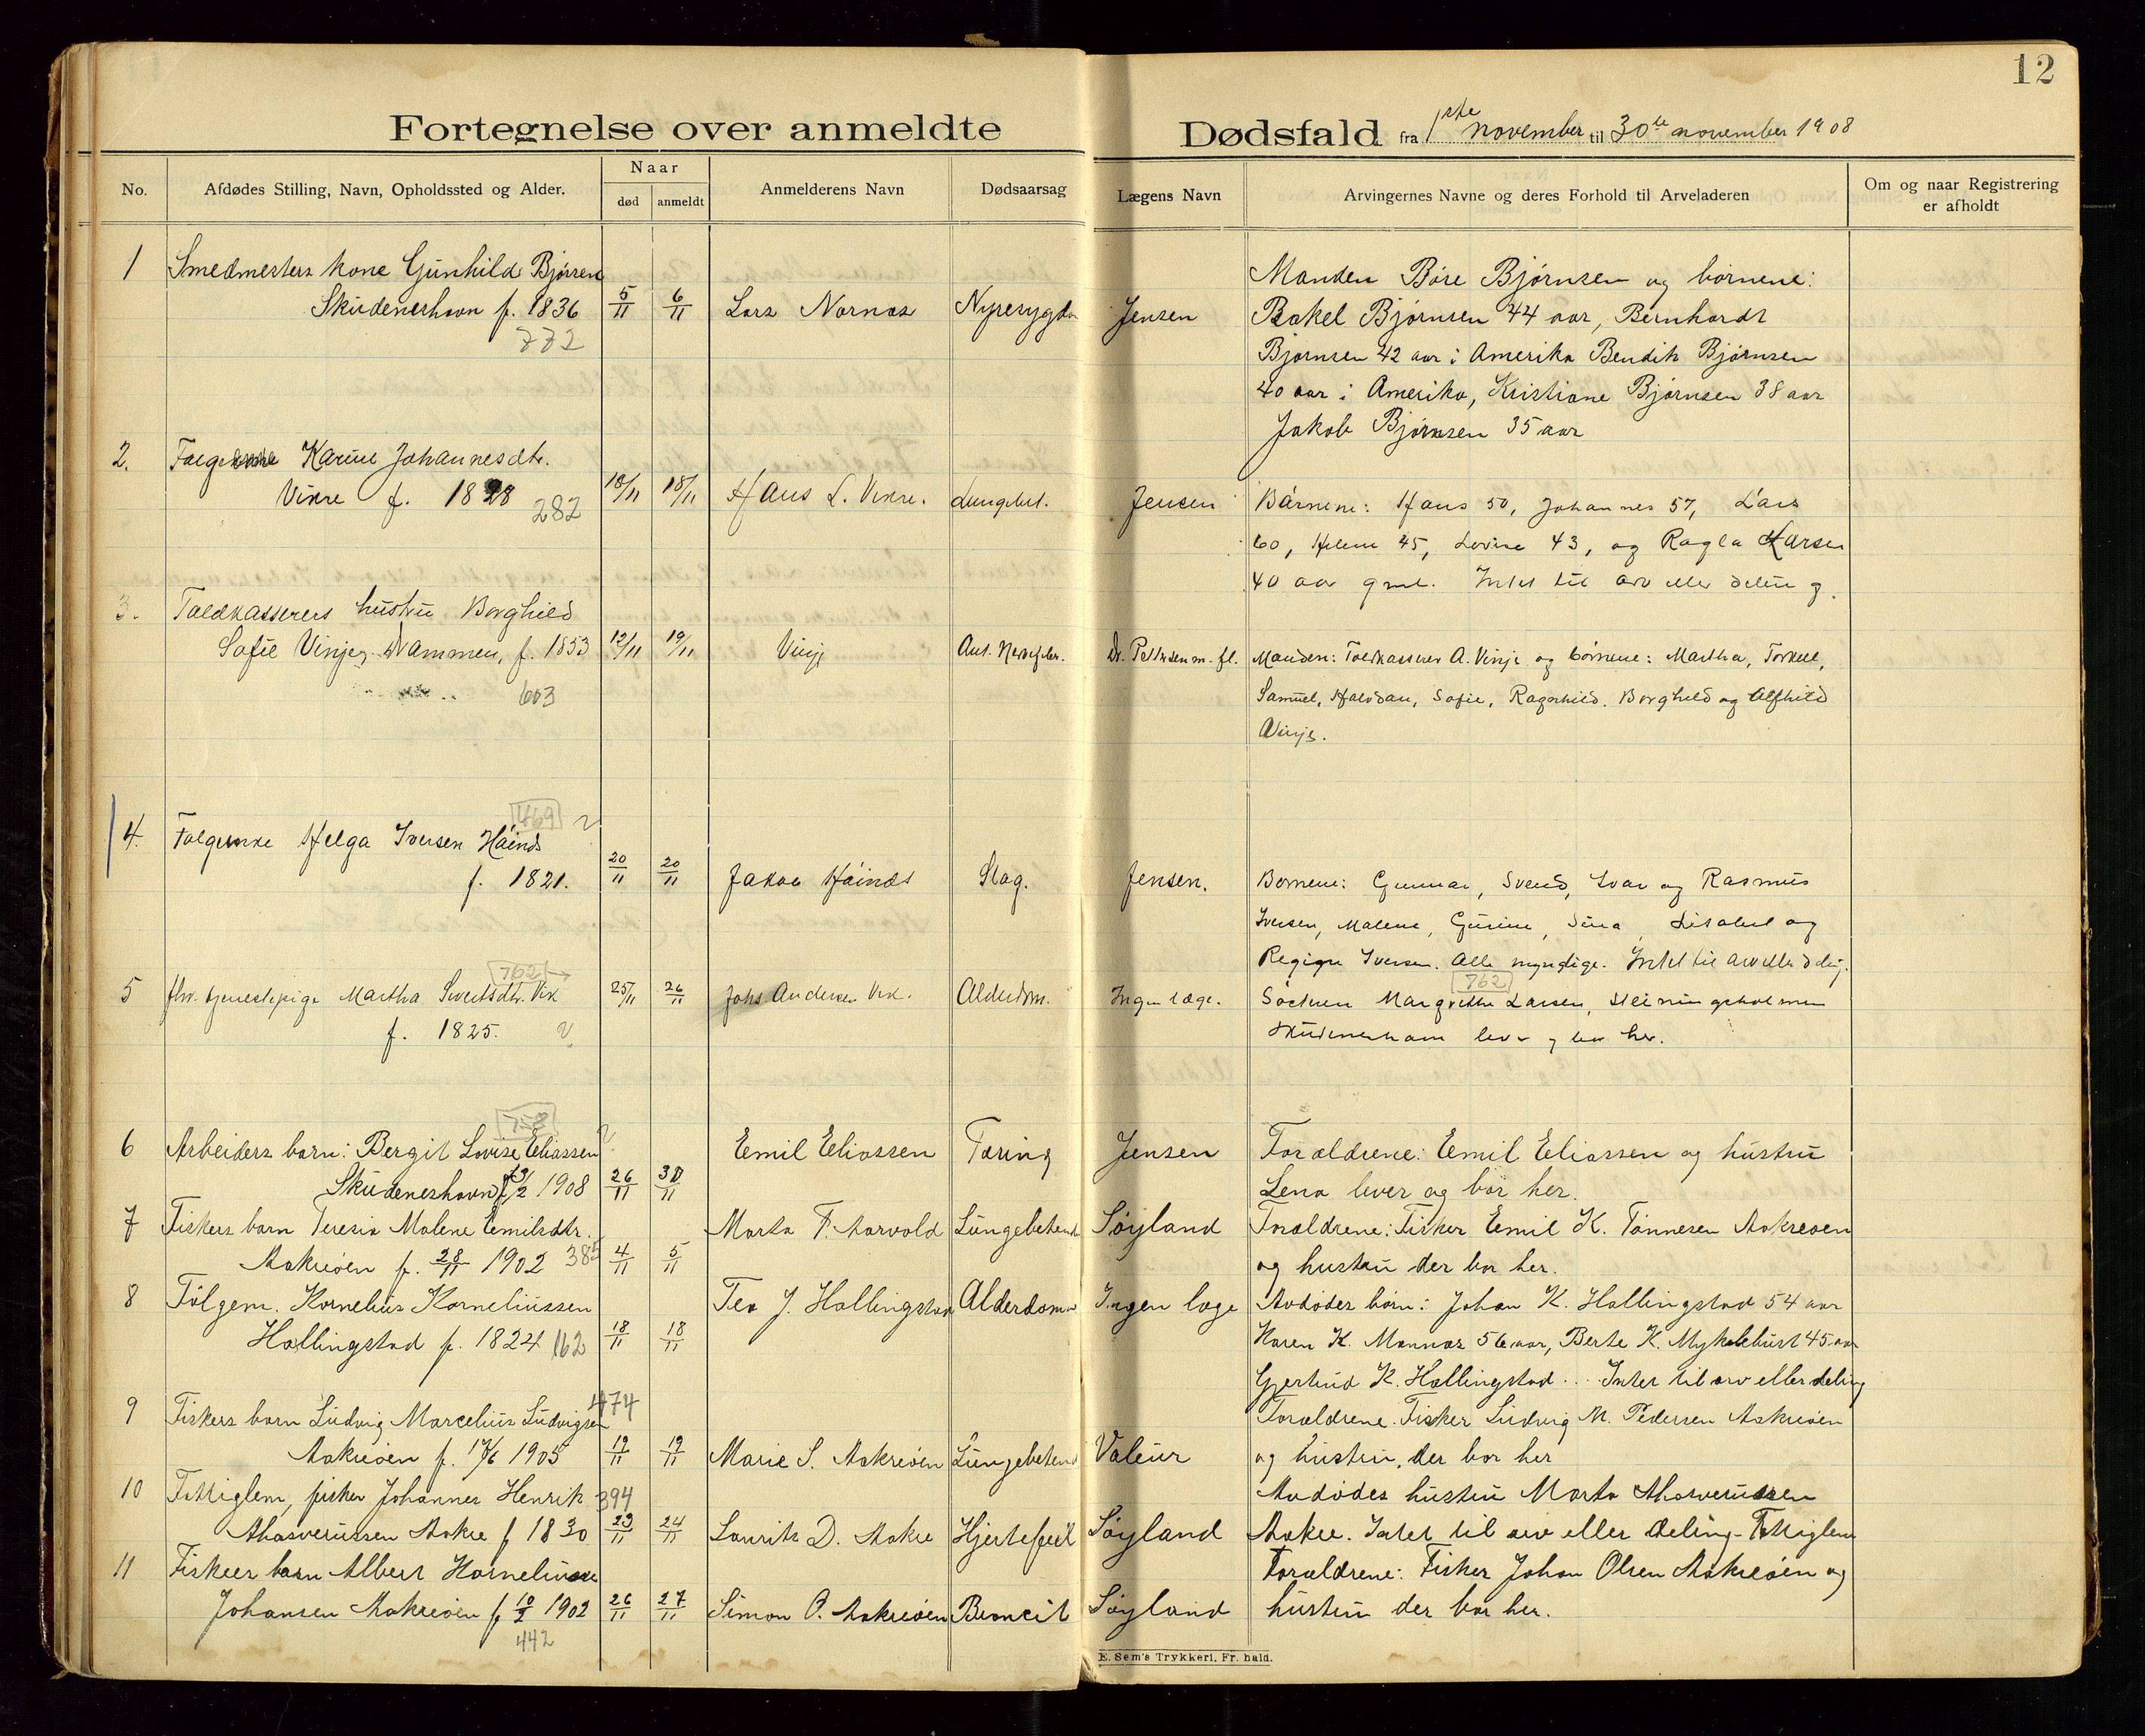 12
Fortegnelse over anmeldte Dødsfald fra 1ste november til 30te november 1908
No. Afdødes Stilling, Navn, Opholdssted og Alder. Naar død anmeldt Anmelderens Navn Dødsaarsag Lægens Navn Arvingernes Navne og deres Forhold til Arveladeren Om og naar Registrering er afholdt
1 Smedmesters kone Gunhild Bjørnsen Manden Bore Bjørnsen og børnene:
Skudeneshavn f. 1836 5/11 6/11 Lars Nornes Nyresygdom Jensen Rakel Bjørnsen 44 aar, Bernhardt
772 Bjørnsen 42 aar i Amerika Bendik Bjørnsen
40 aar i Amerika, Kristiane Bjørnsen 38 aar
Jakob Bjørnsen 35 aar
2. Karine Johannesdtr.
Vikre f. 1828 282 10/11 18/11 Hans L. Vikre. Lungebet. Jensen Børnene: Hans 50, Johannes 57, Lars
60, Helene 45, Lovise 43, og Ragla Larsen
40 aar gml. Intet til arv eller deling.
3. Toldkasserers hustru Borghild
Sofie Vinje, Hammen, f. 1853 12/11 19/11 Vinje Dr. Pettersen m. fl. Manden: Toldkasserer A. Vinje og børnene: Martha, Torkell,
603 Samuel, Halvdan, Sofie, Ragnhild, Borghild og Alfhild
Vinje.
469
4. Folgeenke Helga Iversen Håinds
f. 1821. 20/11 20/11 Jakob Håinds Slag. Jensen. Bornene: Gunnar, Svend, Ivar og Rasmus
Iversen, Malene, Gurine, Sina, Lisabet og
Regine Iversen. Alle myndige. Intet til arv eller deling.
762 762
5 fhv. tjenestepige Martha Sivertsdtr. Vik 25/11 26/11 Johs Andersen Vik. Alderdom. Ingen læge. Søsteren Margrethe Larsen, Steiningsholmen
f. 1825. Skudeneshavn lever og bor her.
758
6 Arbeiders barn: Bergit Lovise Eliassen Emil Eliassen Tæring Jensen Forældrene: Emil Eliassen og hustru
Skudeneshavn 1908 26/11 30/11 Lena lever og bor her.
7 Fiskers barn Teresia Malene Emilsdtr. Marta F. Aarvold Lungebetend Søyland Forældrene: Fisker Emil K. Tønnesen Aakreøen
Aakreøen f. 28/11 1902 385 4/11 5/11 og hustru der bor her.
8 Folgem. Kornelius Korneliussen Tea J. Hallingstad Alderdom Ingen læge Avdødes børn: Johan K. Hallingstad 54 aar
Hallingstad f. 1824 162 18/11 18/11 Karen K. Mannas 56 aar, Berte K. Myklebust 45 aar
Gjertrud K. Hallingstad... Intet til arv eller deling
474
9 Fiskers barn Ludvig Marcelius Ludvigsen Forældrene. Fisker Ludvig M. Pedersen Aakreøen
Aakreøen f. 17/6 1905 19/11 19/11 Marie S. Aakreøen Lungebetend Valeur og hustru, der bor her
10 Fattiglem, fisker Johannes Henrik 394 Avdødes hustru Marta Ahasverussen
Ahasverussen Aakre f 1830 23/11 24/11 Laurits D. Aakre Hjertefeil Søyland Aakre. Intet til arv eller deling - Fattiglem
11 Fiskers barn Albert Kornelius Forældrene: Fisker Johan Olsen Aakreøen og
Johansen Aakreøen f 10/2 1902 26/11 27/11 Simon O. Aakreøen Broncit Søyland hustru der bor her.
442
E. Sem's Trykkeri, Fr. hald.